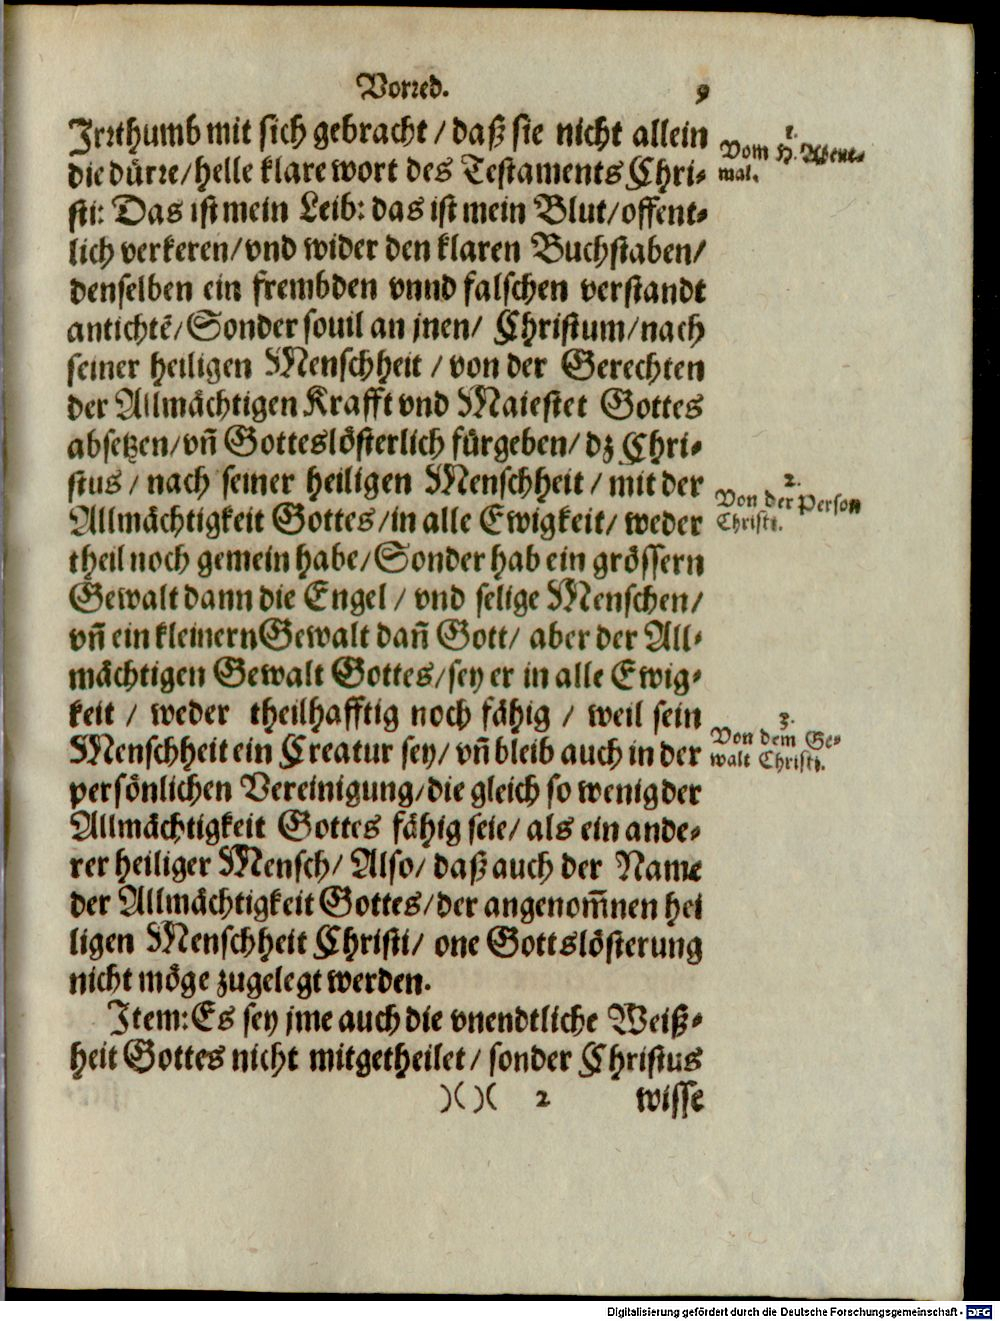 Vorred.
9
Jrrthumb mit sich gebracht / daß sie nicht allein
die dürre/helle klare wort des Testaments Chri-
sti: Das ist mein Leib: das ist mein Blut/offent-
lich verkeren/vnd wider den klaren Buchstaben/
denselben ein frembden vnnd falschen verstandt
antichtē/Sonder souil an jnen/ Christum/nach
seiner heiligen Menschheit / von der Gerechten
der Allmächtigen Krafft vnd Maiestet Gottes
absetzen/vn̄ Gotteslösterlich fürgeben/ dz Chri-
stus / nach seiner heiligen Menschheit / mit der
Allmächtigkeit Gottes /in alle Ewigkeit/ weder
theil noch gemein habe/Sonder hab ein grössern
Gewalt dann die Engel / vnd selige Menschen/
vn̄ ein kleinern Gewalt dan̄ Gott/ aber der All-
mächtigen Gewalt Gottes/sey er in alle Ewig-
keit / weder theilhafftig noch fähig / weil sein
Menschheit ein Creatur sey/ vn̄ bleib auch in der
persönlichen Vereinigung/die gleich so wenig der
Allmächtigkeit Gottes fähig seie/ als ein ande-
rer heiliger Mensch/ Also/ daß auch der Name
der Allmächtigkeit Gottes/der angenom̄nen hei
ligen Menschheit Christi/ one Gottslösterung
nicht möge zugelegt werden.
Item: Es sey jme auch die vnendtliche Weiß-
heit Gottes nicht mitgetheilet / sonder Christus
)( )( 2
wisse
1.
Vom H. Abent-
mal.
2.
Von der Person
Christi.
3.
Von dem Ge-
walt Christi.
Digitalisierung gefördert durch die Deutsche Forschungsgemeinschaft - DFG